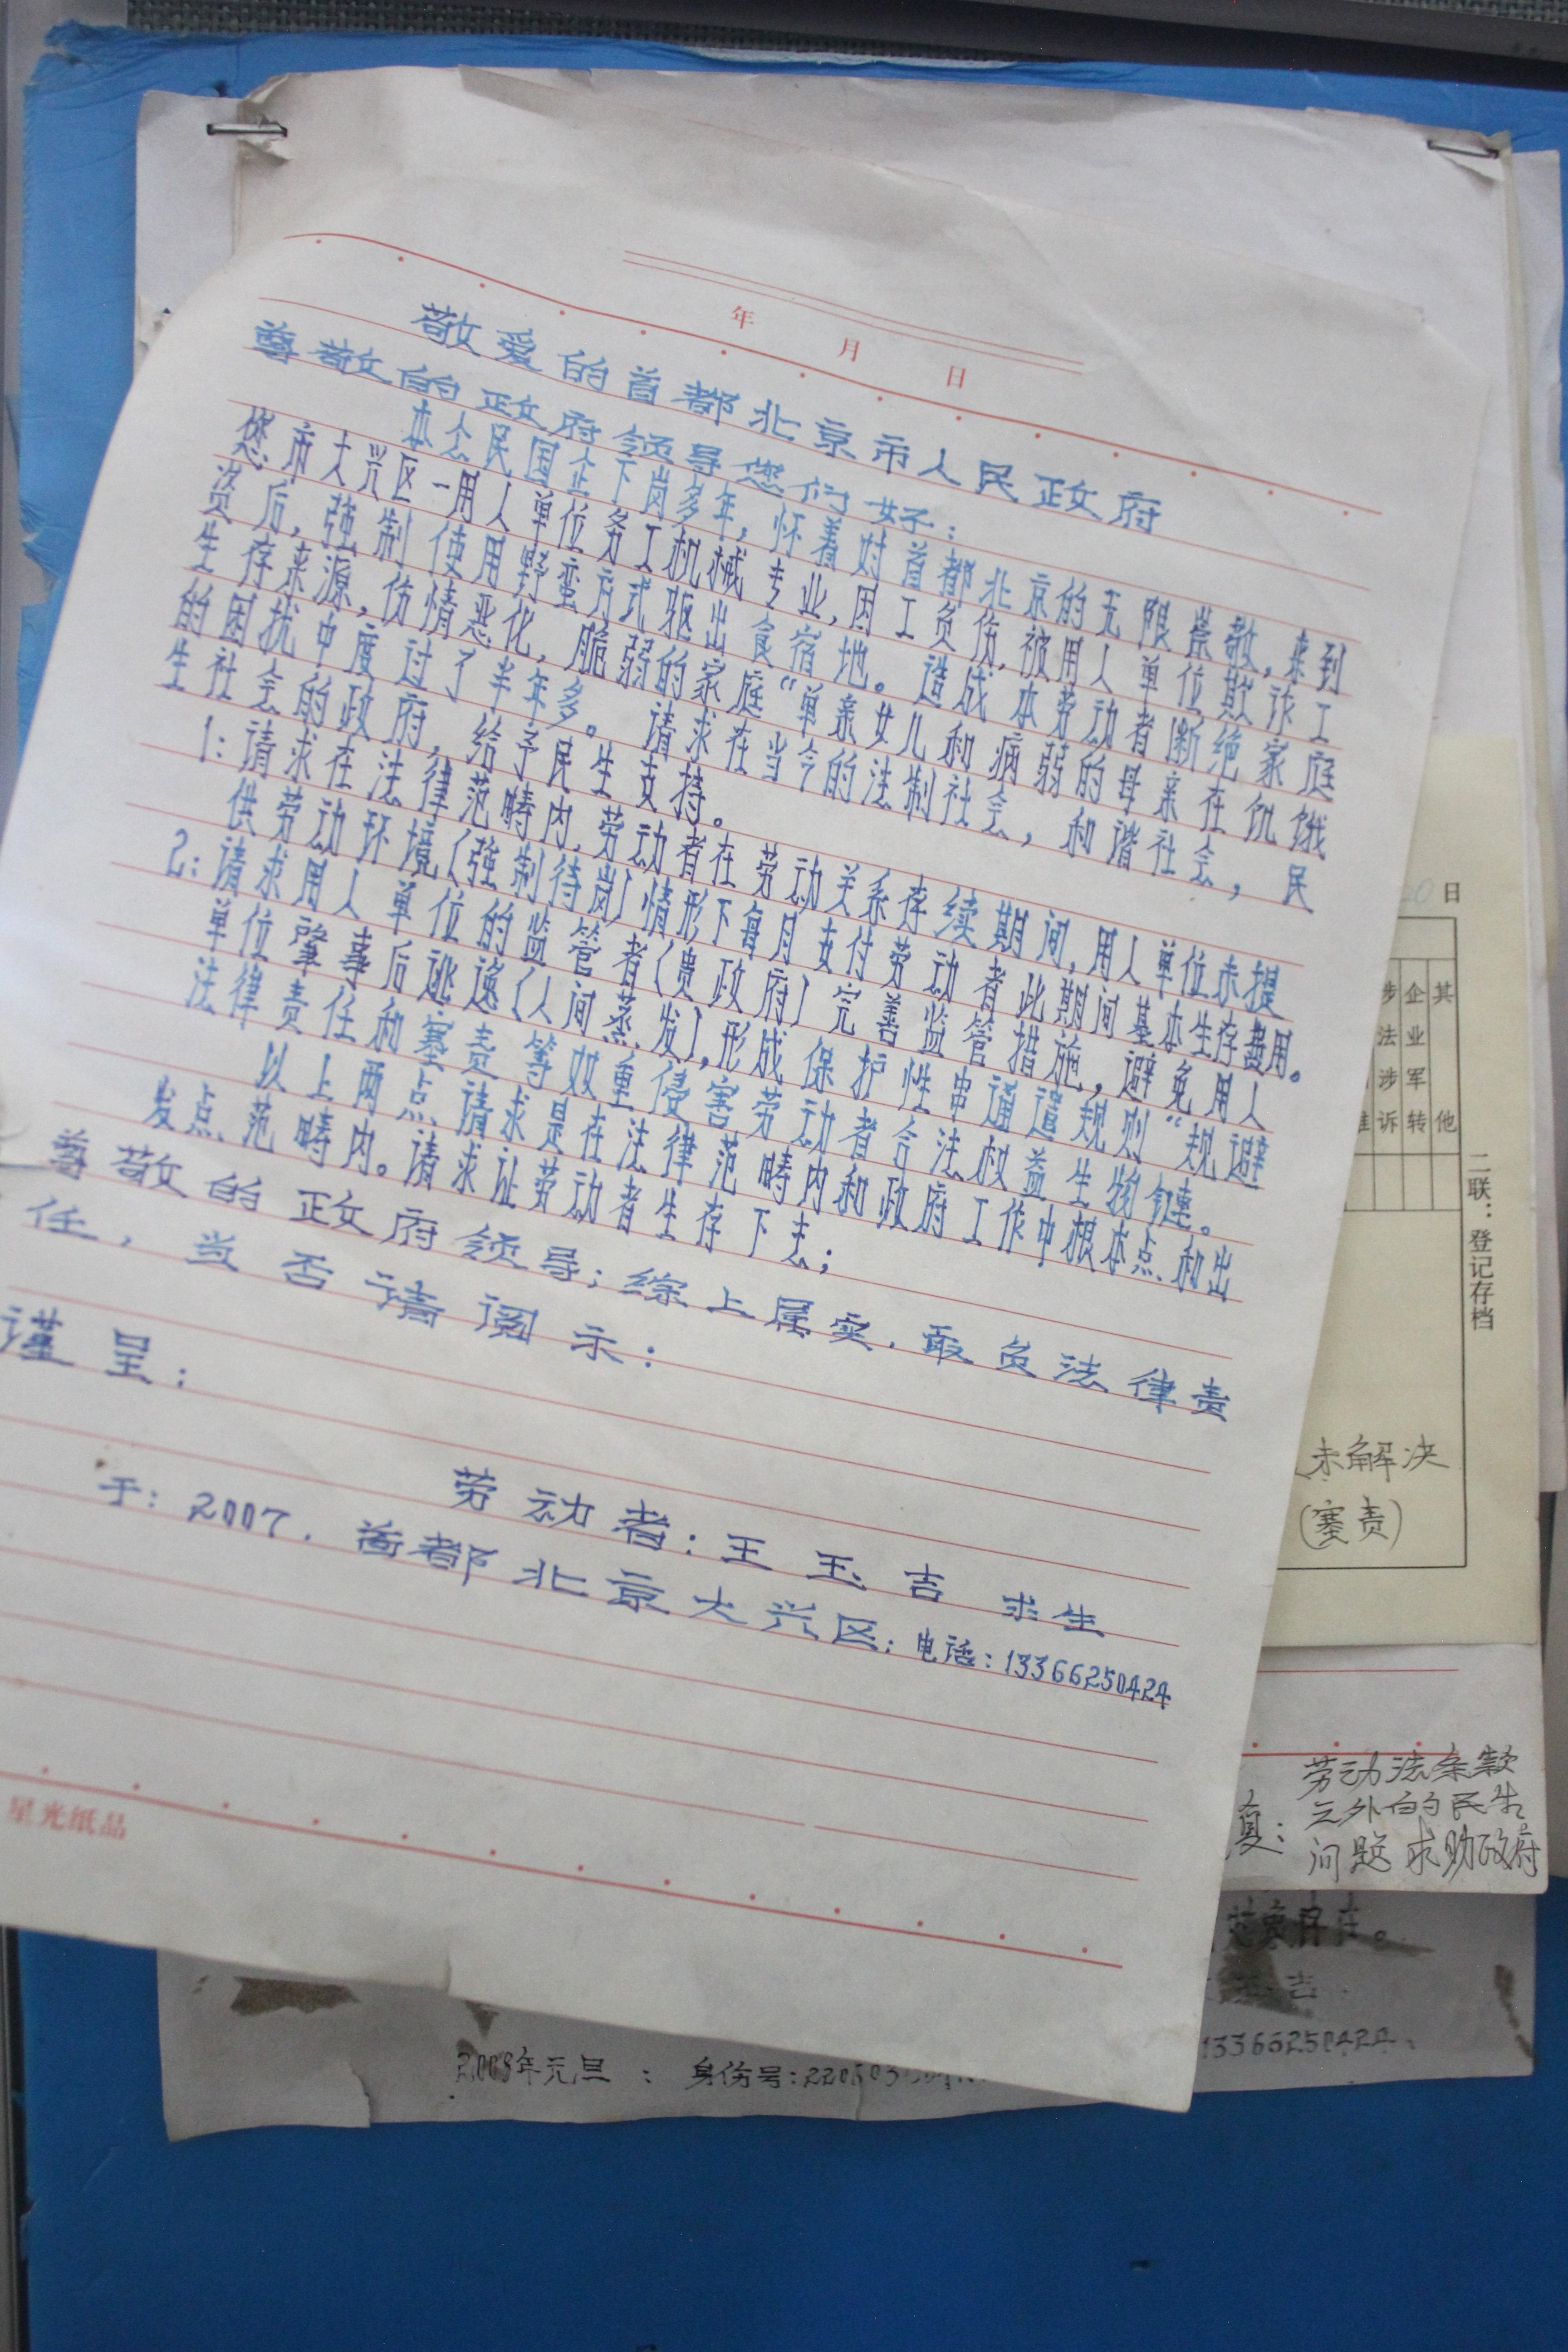 年 月 日
敬爱的首都北京市人民政府
尊敬的政府领导您们好:
本公民国企下岗多年,怀着对首都北京的无限崇敬,来到
您市大兴区一用人单位务工机械专业,因工负伤,被用人单位欺诈工
资后,强制使用野蛮方式驱出食宿地。造成本劳动者断绝家庭
生存来源,伤情恶化,脆弱的家庭“单亲女儿和病弱的母亲在饥饿
的困扰中度过了半年多。请求在当今的法制社会,和谐社会,民
生社会的政府,给予民生支持。
1:请求在法律范畴内,劳动者在劳动关系存续期间,用人单位未提
供劳动环境(强制待岗)情形下每月支付劳动者此期间基本生存费用。
2:请求用人单位的监管者(贵政府)完善监管措施,避免用人
单位肇事后逃逸(人间蒸发),形成保护性串通遣规则“规避
法律责任和塞责等双重侵害劳动者合法权益生物链。
以上两点请求是在法律范畴内和政府工作中根本点和出
发点范畴内。请求让劳动者生存下去;
尊敬的政府领导;综上属实,敢负法律责
任,当否请阅示:
谨呈:
劳动者:王玉吉 求生
于:2007.首都北京大兴区:电话:13366250424
星光纸品
日
涉法涉诉
企业军转
其他
二联:登记存档
未解决
(塞责)
劳动法条款
之外的民生
复:
问题求助政府
存在。
吉
13366250424
2008年元旦:身份号: